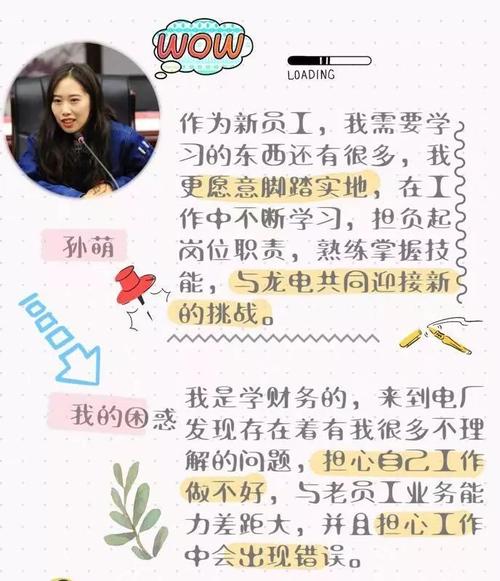 WOW
LOADING
作为新员工，我需要学
习的东西还有很多，我
更愿意脚踏实地，在工
作中不断学习，担负起
岗位职责，熟练掌握技
能，与龙电共同迎接新
的挑战。
孙萌
我的困惑
我是学财务的，来到电厂
发现存在着有我很多不理
解的问题，担心自己工作
做不好，与老员工业务能
力差距大，并且担心工作
中会出现错误。